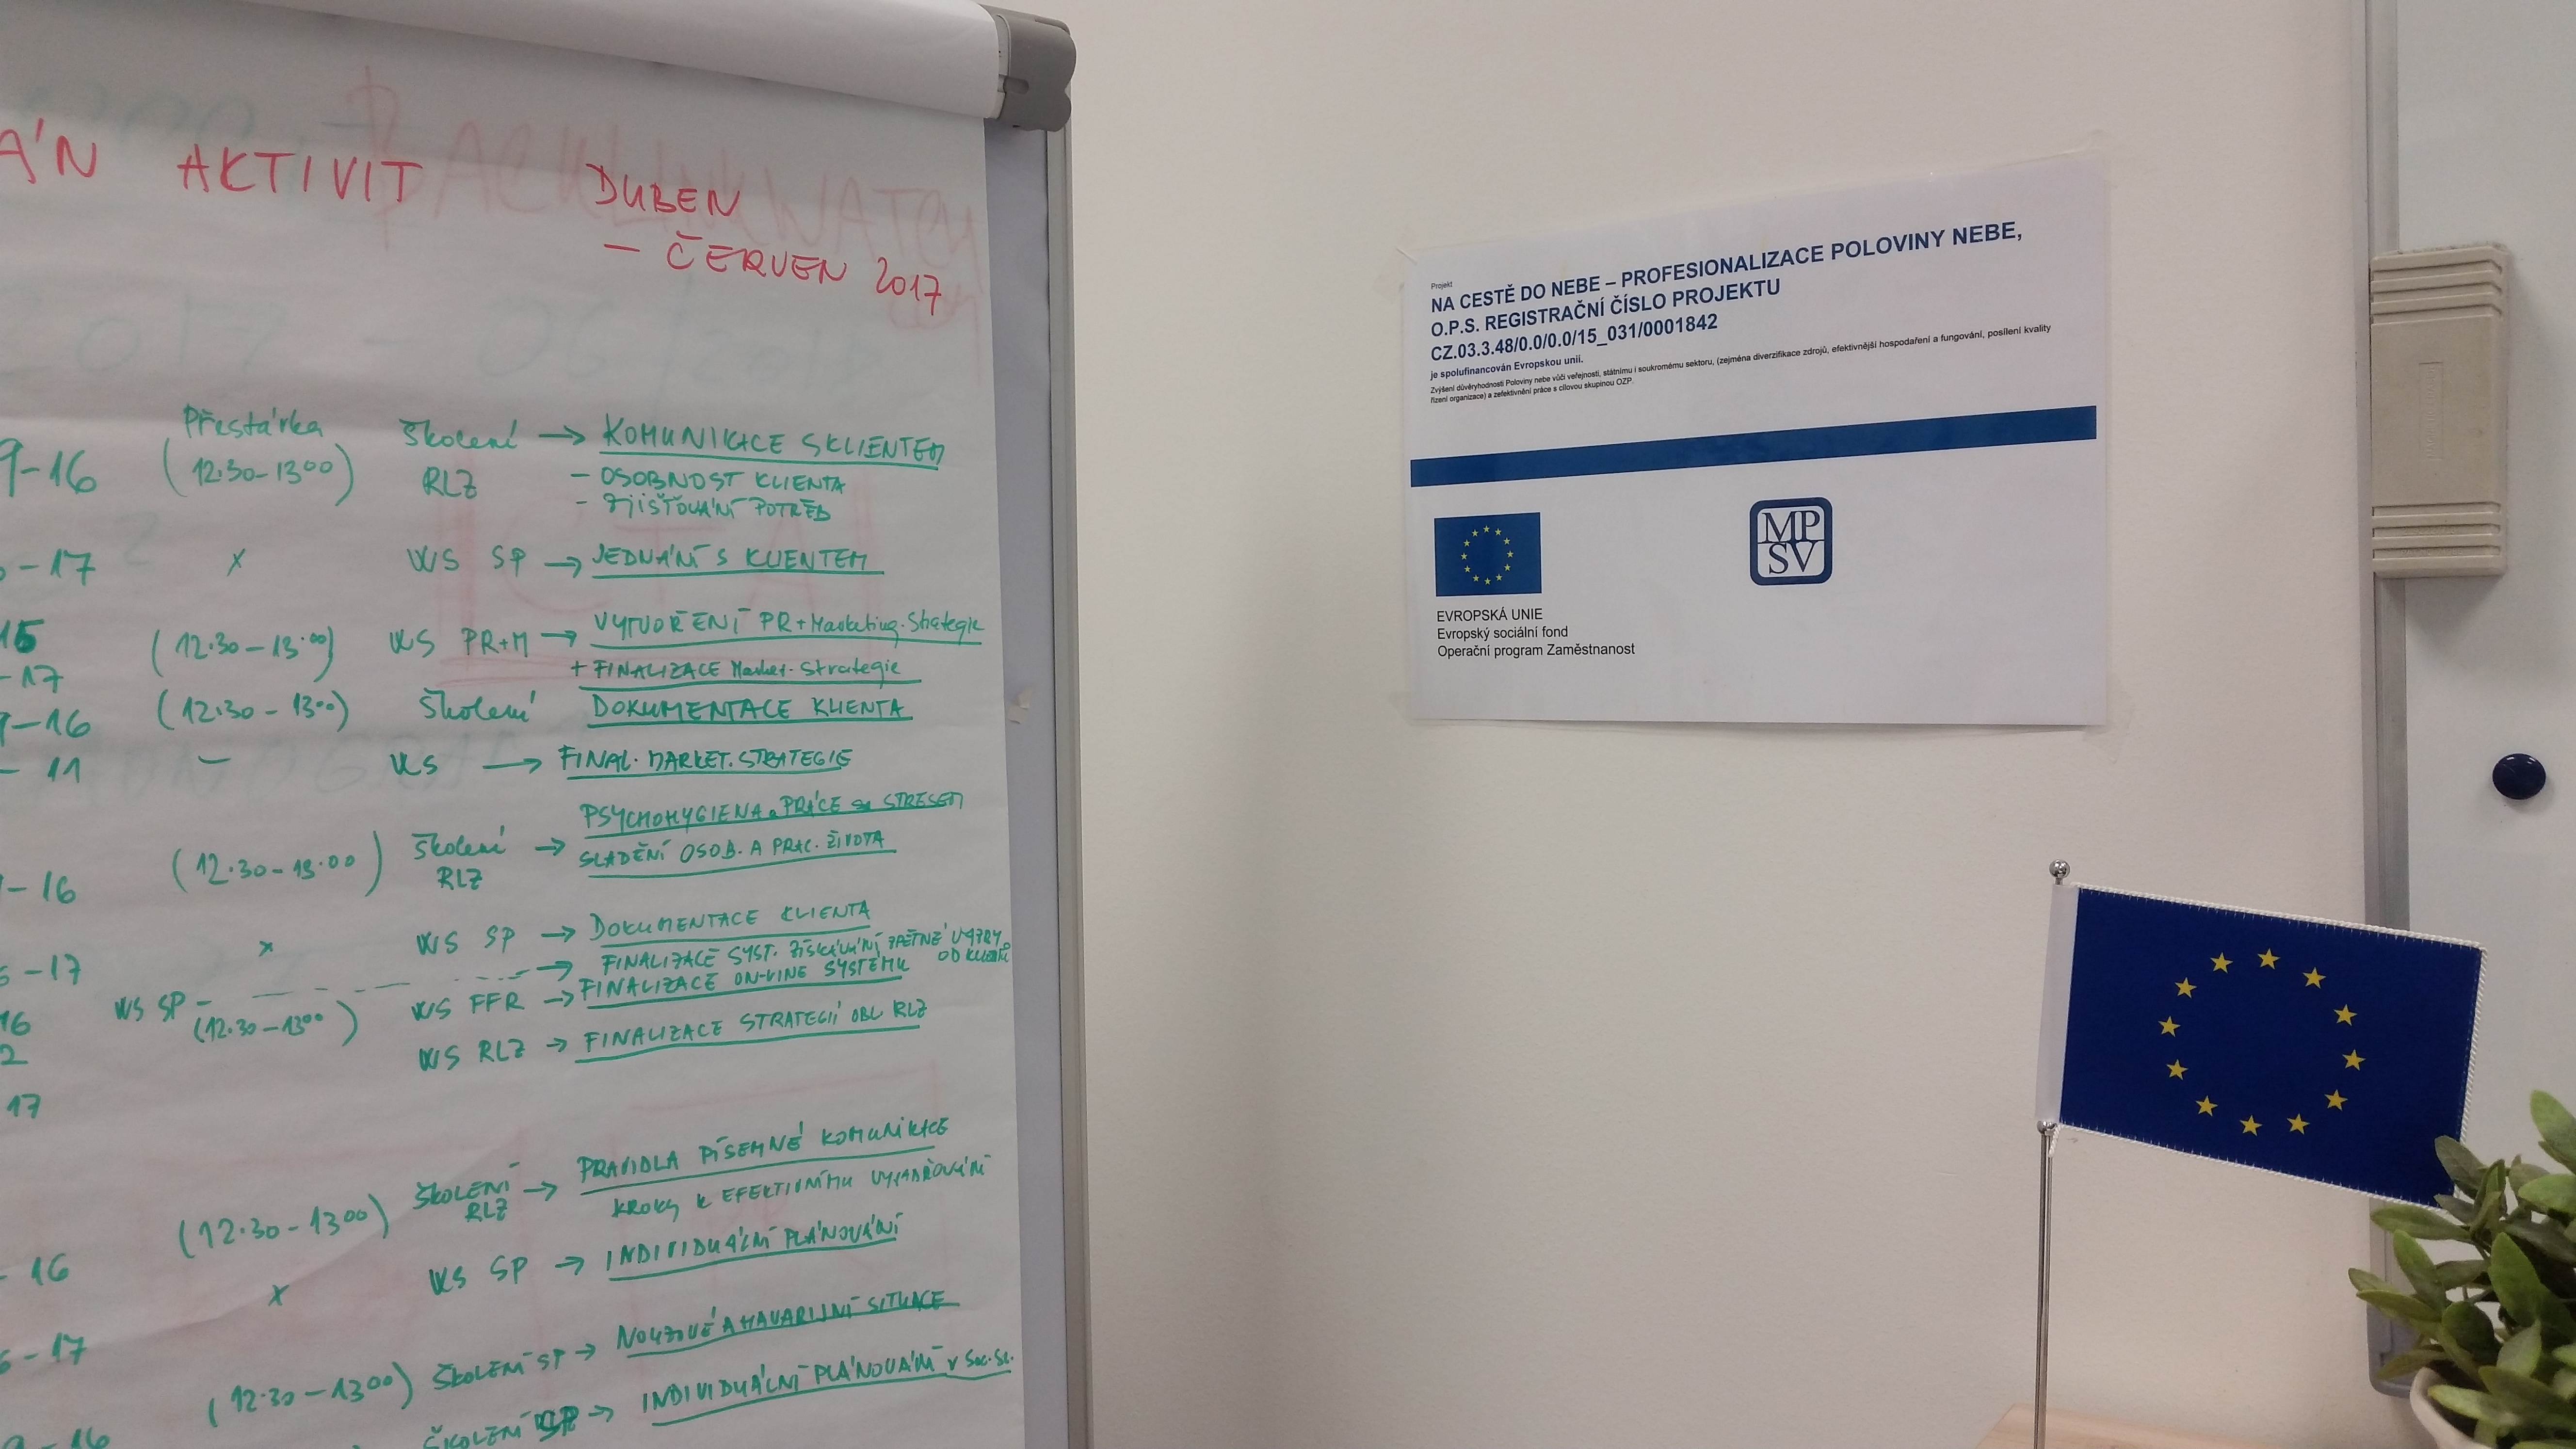 ÁN AKTIVIT DUBEN
– ČERVEN 2017
9-16 Přestávka (12.30-13⁰⁰) Školení RLZ → KOMUNIKACE S KLIENTEM
- OSOBNOST KLIENTA
- ZJIŠŤOVÁNÍ POTŘEB
-17 x WS SP → JEDNÁNÍ S KLIENTEM
15 (12.30-13.⁰⁰) WS PR+M → VYTVOŘENÍ PR+Marketing. Strategie
-17 + FINALIZACE Market. Strategie
-16 (12.30-13⁰⁰) Školení DOKUMENTACE KLIENTA
- 11 – WS → FINAL. MARKET. STRATEGIE
-16 (12.30-13.00) Školení RLZ → PSYCHOHYGIENA a PRÁCE se STRESEM
SLADĚNÍ OSOB. A PRAC. ŽIVOTA
x WS SP → DOKUMENTACE KLIENTA
-17 WS SP - → FINALIZACE SYST. ZÍSKÁVÁNÍ ZPĚTNÉ VAZBY OD KLIENTŮ
16 (12.30-13⁰⁰) WS FFR → FINALIZACE ON-LINE SYSTÉMU
2 WS RLZ → FINALIZACE STRATEGIÍ OBL. RLZ
17
- 16 (12.30-13⁰⁰) ŠKOLENÍ RLZ → PRAVIDLA PÍSEMNÉ KOMUNIKACE
KROKY K EFEKTIVNÍMU VYJADŘOVÁNÍ
x WS SP → INDIVIDUÁLNÍ PLÁNOVÁNÍ
-17 (12.30-13⁰⁰) ŠKOLENÍ SP → NOUZOVÉ A HAVARIJNÍ SITUACE
-16 ŠKOLENÍ SP → INDIVIDUÁLNÍ PLÁNOVÁNÍ v Soc. Sl.
Projekt
NA CESTĚ DO NEBE – PROFESIONALIZACE POLOVINY NEBE,
O.P.S. REGISTRAČNÍ ČÍSLO PROJEKTU
CZ.03.3.48/0.0/0.0/15_031/0001842
je spolufinancován Evropskou unií.
Zvýšení důvěryhodnosti Poloviny nebe vůči veřejnosti, státnímu i soukromému sektoru, (zejména diverzifikace zdrojů, efektivnější hospodaření a fungování, posílení kvality
řízení organizace) a zefektivnění práce s cílovou skupinou OZP.
MP
SV
EVROPSKÁ UNIE
Evropský sociální fond
Operační program Zaměstnanost